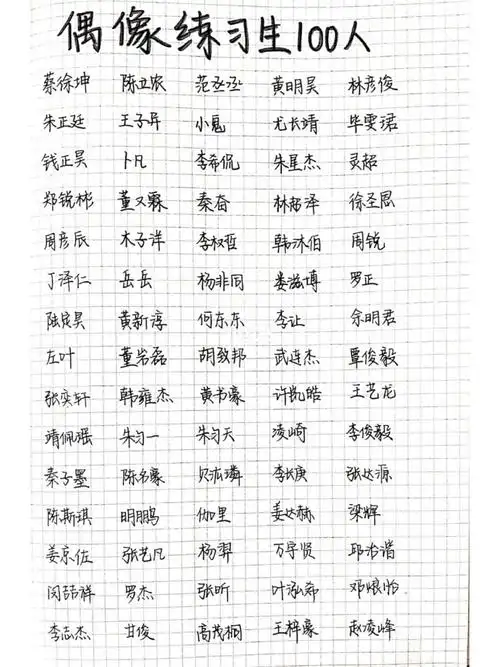 偶像练习生100人
蔡徐坤 陈立农 范丞丞 黄明昊 林彦俊
朱正廷 王子异 小鬼 尤长靖 毕雯珺
钱正昊 卜凡 李希侃 朱星杰 灵超
郑锐彬 董又霖 秦奋 林超泽 徐圣恩
周彦辰 木子洋 李权哲 韩沐伯 周锐
丁泽仁 岳岳 杨非同 娄滋博 罗正
陆定昊 黄新淳 何东东 李让 余明君
左叶 董岩磊 胡致邦 武连杰 覃俊毅
张奕轩 韩雍杰 黄书豪 许凯皓 王艺龙
靖佩瑶 朱匀一 朱匀天 凌崎 李俊毅
秦子墨 陈名豪 贝汯璘 李长庚 张达源
陈斯琪 明鹏 伽里 姜达赫 梁辉
姜京佐 张艺凡 杨羿 万宇贤 邱治谐
闵喆祥 罗杰 张昕 叶泓希 邓烺怡
李志杰 甘俊 高茂桐 王梓豪 赵凌峰